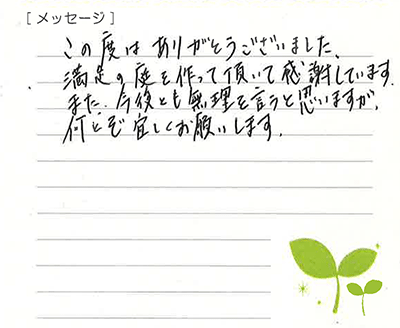 [メッセージ]
この度は ありがとうございました、
満足の庭を作って頂いて感謝しています.
また、今後とも無理を言うと思いますが、
何とぞ宜しくお願いします.